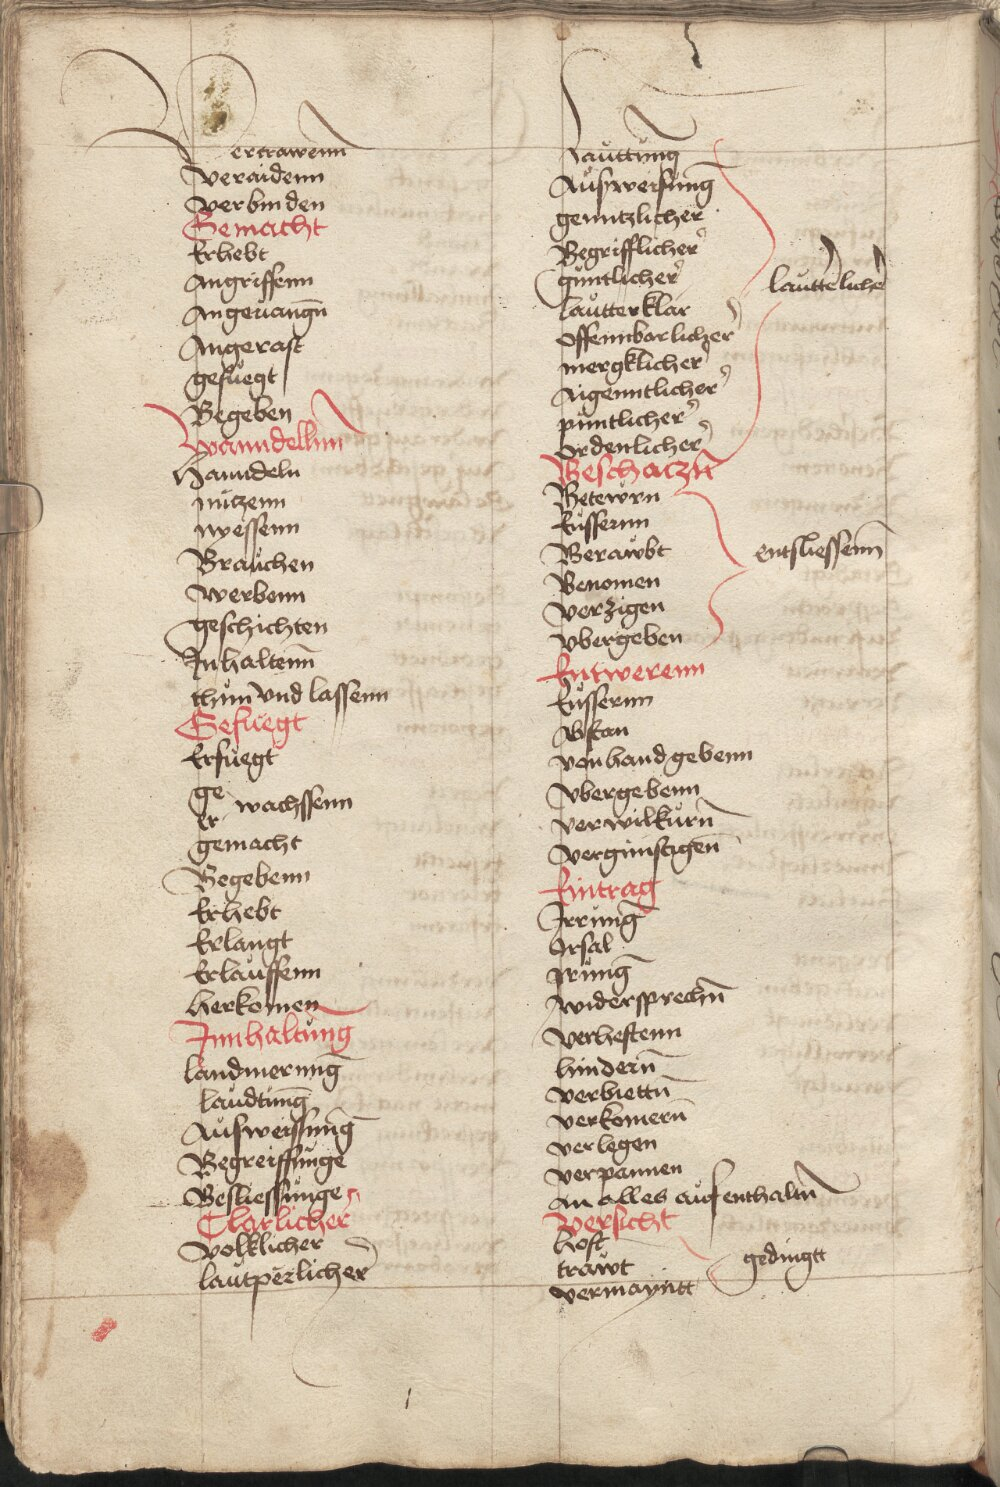 Vertrawenn
Veraidenn
Verbinden
Gemacht
Erhebt
Angriffenn
Angeuangn̄
Angerast
gefuegt
Begeben
Wanndellnn
Hanndeln
nützenn
wessenn
Brauchen
Werbenn
geschichten
Inhaltenn
thun vnd lassenn
Gefuegt
Erfuegt
ge
er wachssenn
gemacht
Begebenn
Erhebt
Erlangt
Erlauffenn
herkomen
Innhaltung
landmerung
laudtung
Aufweisung
Begreiffunge
Besliessunge
Clerlicher
Volklicher
lautperlicher
lauttung
Ausweisung
genntzlicher
Begrifflicher
guntlicher
lautterklar
offennbarlicher
mergklicher
Aigenntlicher
puntlicher
ordenlicher
lautterlicher
Beschatzn̄
Betewrn
Eussernn
Berawbt
Benomen
Verzigen
Vbergeben
entsliessenn
Entwerenn
Eussernn
Abstan
von hand gebenn
Vbergebenn
Verwilkurn̄
Vergunstigen̄
Eintrag
Irrung
Irsal
Irung
widersprechn̄
Verhefftenn
hindern̄
Verbiettn̄
Verkomern̄
Verlegen
Verpannen
An alles aufenthaltn̄
Versicht
hoft
trawt
vermaynntt
gedingtt